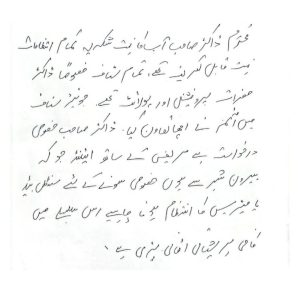 محترم ڈاکٹر صاحب آپ کا بہت شکریہ تمام انتظامات
بہت قابل تعریف تھے، تمام سٹاف خصوصاً ڈاکٹر
حضرات پروفیشنل اور پولائٹ تھے۔ جونیئر سٹاف
میں انجم نے اچھا تعاون کیا۔ ڈاکٹر صاحب خصوصی
درخواست ہے مریض کے ساتھ اٹینڈنٹ جو کہ
بیرون شہر سے ہوں خصوصی سونے کے لئے سنگل بیڈ
یا میٹریس کا انتظام ہونا چاہیے اس سلسلے میں
کافی پریشانی اٹھانی پڑی ہے۔